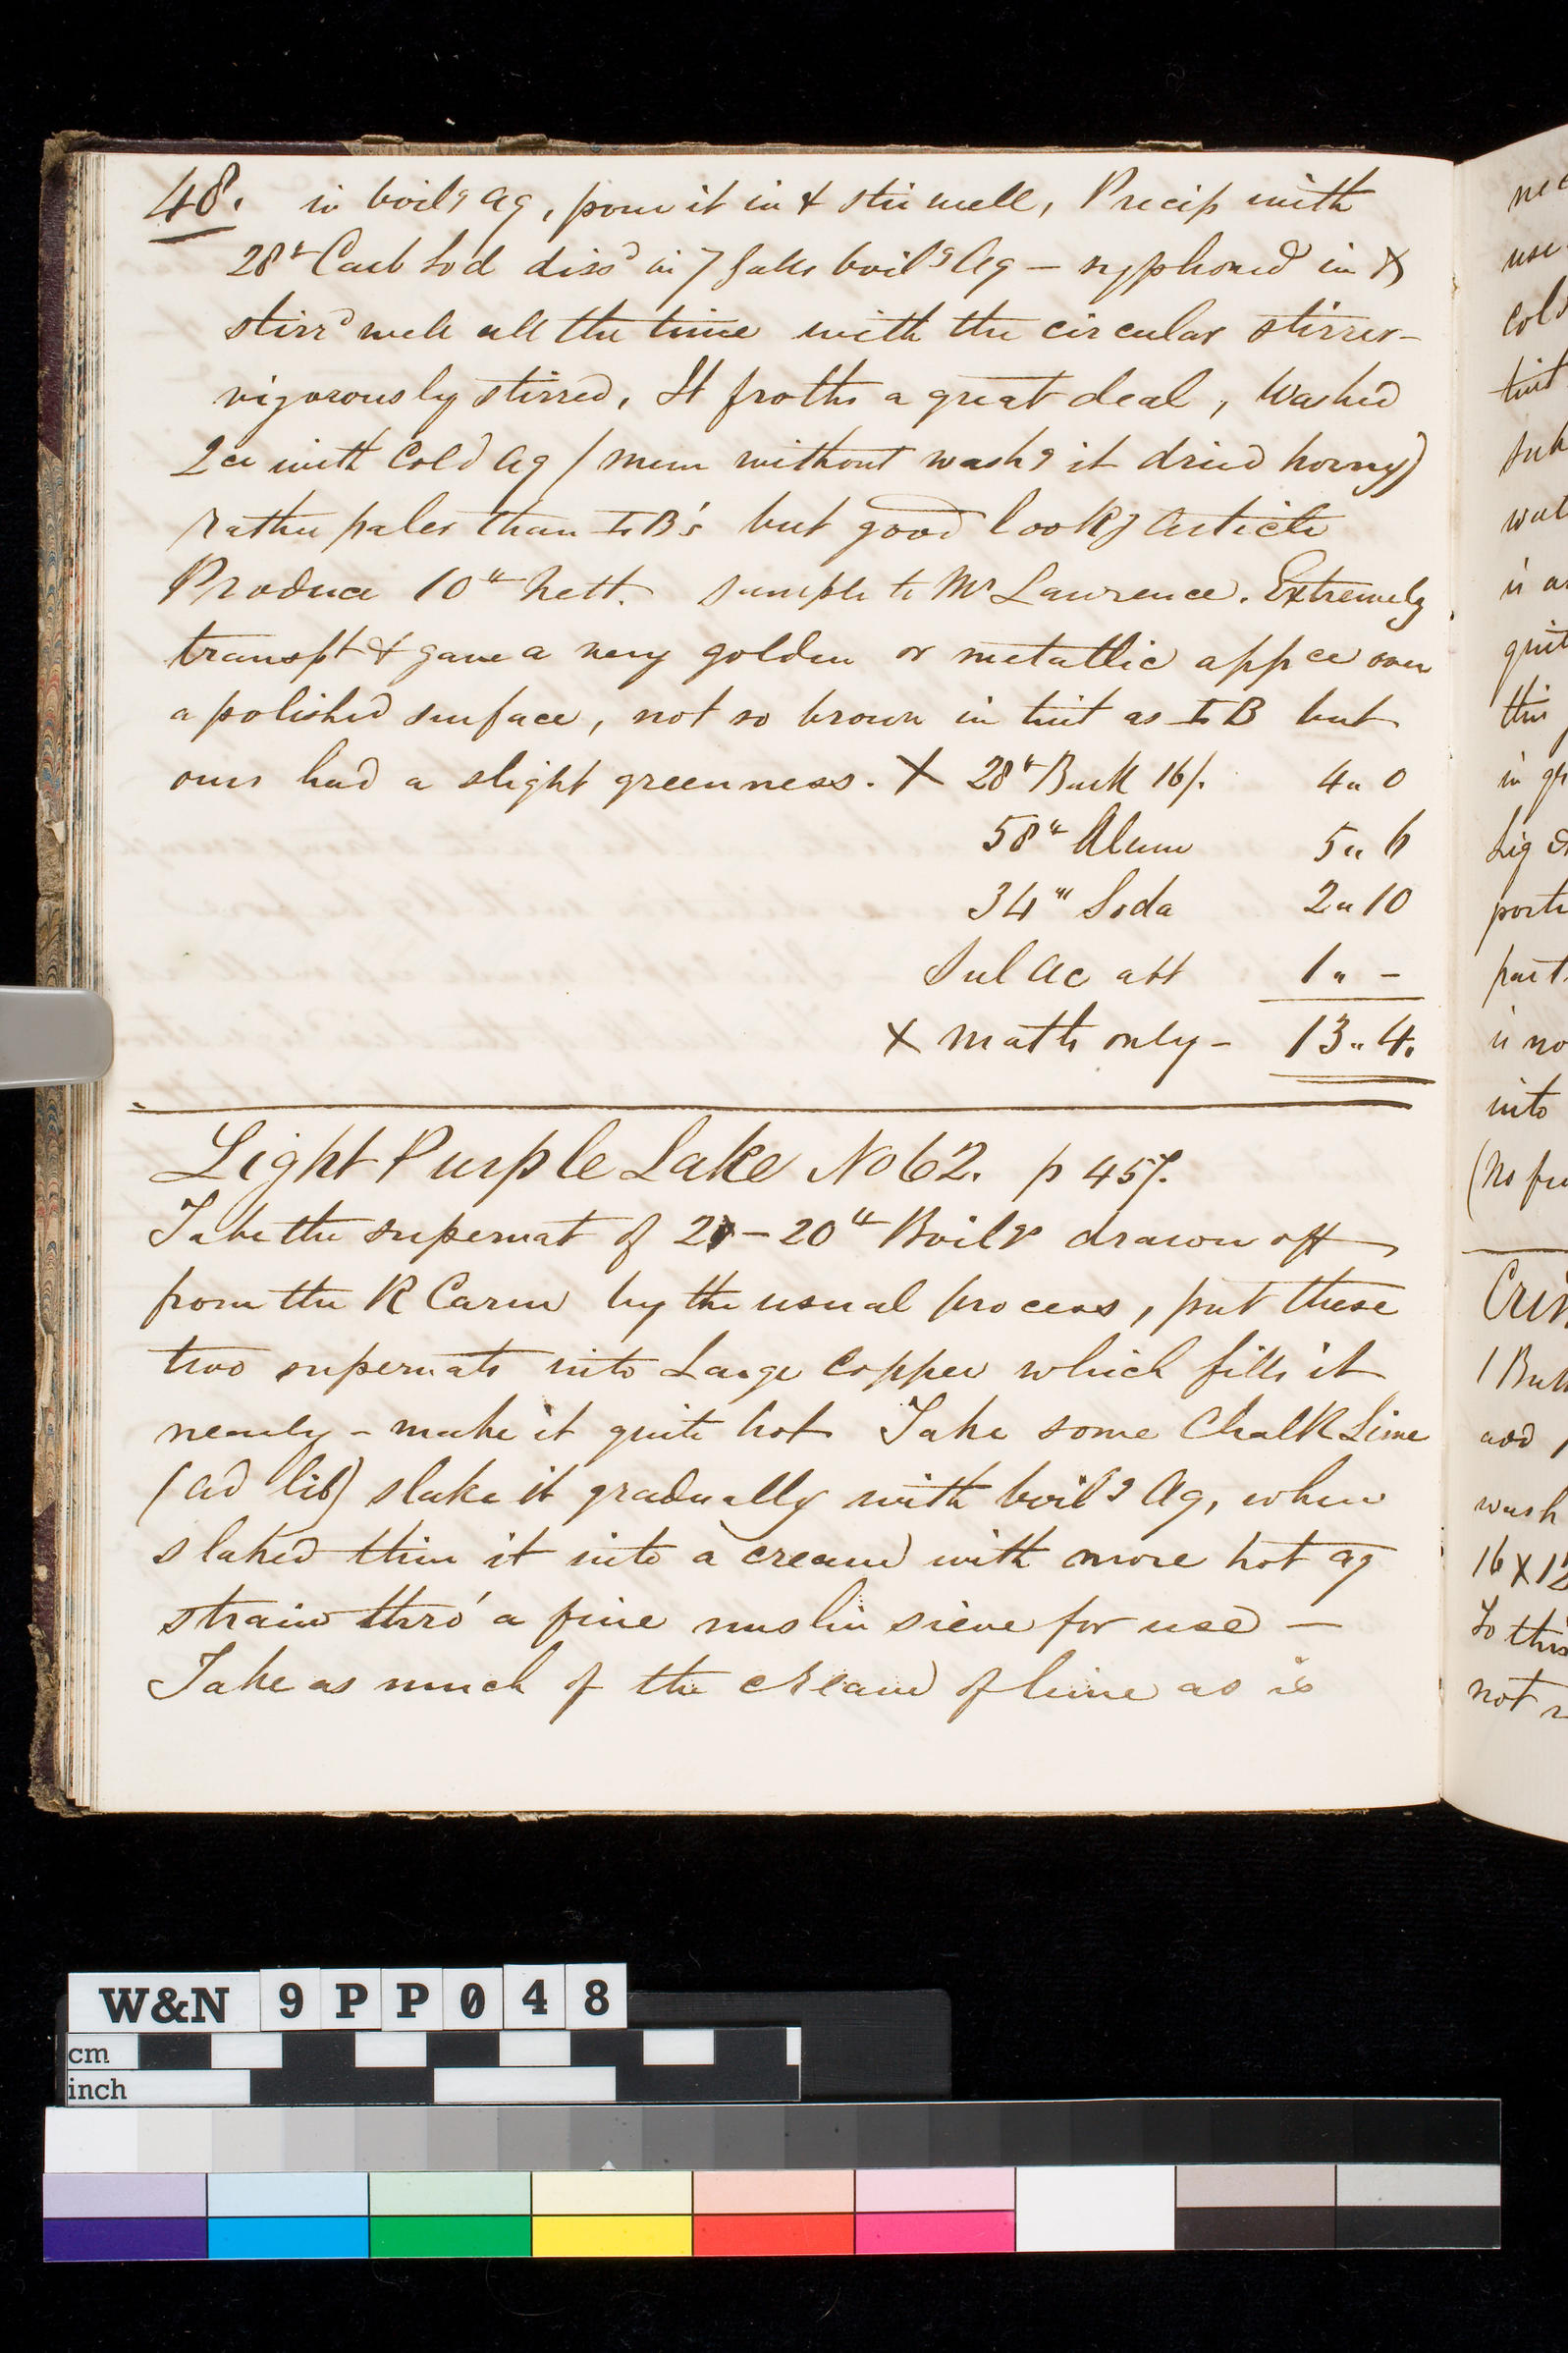 48. in boilg Aq, pour it in & stir well, Precip with
28lb Carb Sod dissd in 7 galls boilg Aq — syphoned in &
stirrd well all the time with the circular stirrer-
vigorously stirred, It froths a great deal, Washed
2ce with Cold Aq (mem without washg it dried horny)
rather paler than IB's but good lookg article
Produce 10lb nett. Sample to Mr Lawrence. Extremely
transpt & gave a very golden or metallic appce over
a polished surface, not so brown in tint as IB but
ours had a slight greenness. X 28lb Bark 16/. 4 " 0
58lb Alum 5 " 6
34 " Soda 2 " 10
Sul Ac abt 1 " -
X matls only - 13 " 4.
Light Purple Lake No 62. p 457.
Take the supernat of 2 - 20lb Boilgs drawn off
from the R Carm by the usual process, put these
two supernats into Large Copper which fills it
nearly - make it quite hot Take some Chalk Lime
(ad lib) slake it gradually with boilg Aq, when
slaked thin it into a cream with more hot aq
strain thro' a fine muslin sieve for use —
Take as much of the cream of lime as is
nec
use
cols
tint
sub
wat
is a
quit
this
in gr
Liq
porti
part
is no
into
(No fu
Crim
1 Bu
add
wash
16 X 12
To this
not
W&N 9PP048
cm
inch